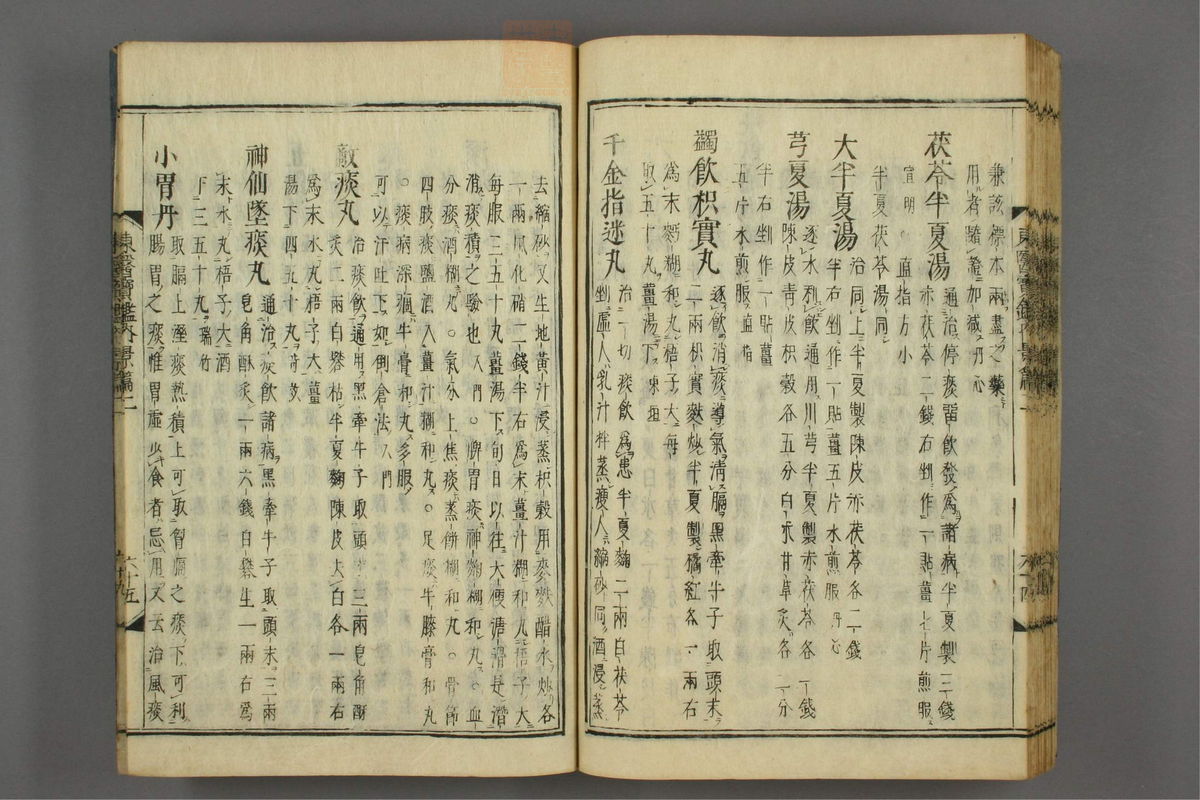 兼該標本兩盡之藥
用者隨證加減丹心
茯苓半夏湯
通治停痰留飮發爲諸病半夏製三錢
赤茯苓二錢右剉作一貼薑七片煎服
宣明○直指方小
半夏茯苓湯同
大半夏湯
治同上半夏製陳皮赤茯苓各二錢
半右剉作一貼薑五片水煎服丹心
芎夏湯
逐水利飮通用川芎半夏製赤茯苓各一錢
陳皮青皮枳殼各五分白朮甘草灸各二分
半右剉作一貼薑
五片水煎服直指
蠲飮枳實丸
逐飮消痰導氣淸膈黑牽牛子取頭末
三兩枳實麩炒半夏製橘紅各一兩右
爲末麪糊和丸梧子大每
取五十丸薑湯下東垣
千金指迷丸
治一切痰飮爲患半夏麴二兩白茯苓
乳汁拌蒸
東醫寶鑑內景篇二
去縮砂又生地黃汁浸蒸枳殼用麥麩醋水炒各
一兩風化硝二錢半右爲末薑汁糊和丸梧子大
每服三五十丸薑湯下旬日以往大便溏滑是潛
消痰積之驗也入門○脾胃痰神麴糊和丸○血
分痰酒糊丸○氣分上焦痰蒸餠糊和丸○骨節
四肢痰鹽酒入薑汁糊和丸○足痰牛膝膏和丸
○痰病深痼牛膏和丸多服
可以汗吐下如倒倉法入門
敵痰丸
治痰飮通用黑牽牛子取頭末三兩皂角酥
灸二兩白礬枯半夏麴陳皮去白各一兩右
爲末水丸梧子大薑
湯下四五十丸
神仙墜痰丸
通治痰飮諸病黑牽牛子取頭末三兩
皂角酥灸一兩六錢白礬生一兩右爲
末水丸梧子大酒
下三五十丸瑞竹
小胃丹
取膈上濕痰熱積上可取胷膈之痰下可利
腸胃之痰惟胃虛少食者忌用又云治風痰
東醫寶鑑內景篇二